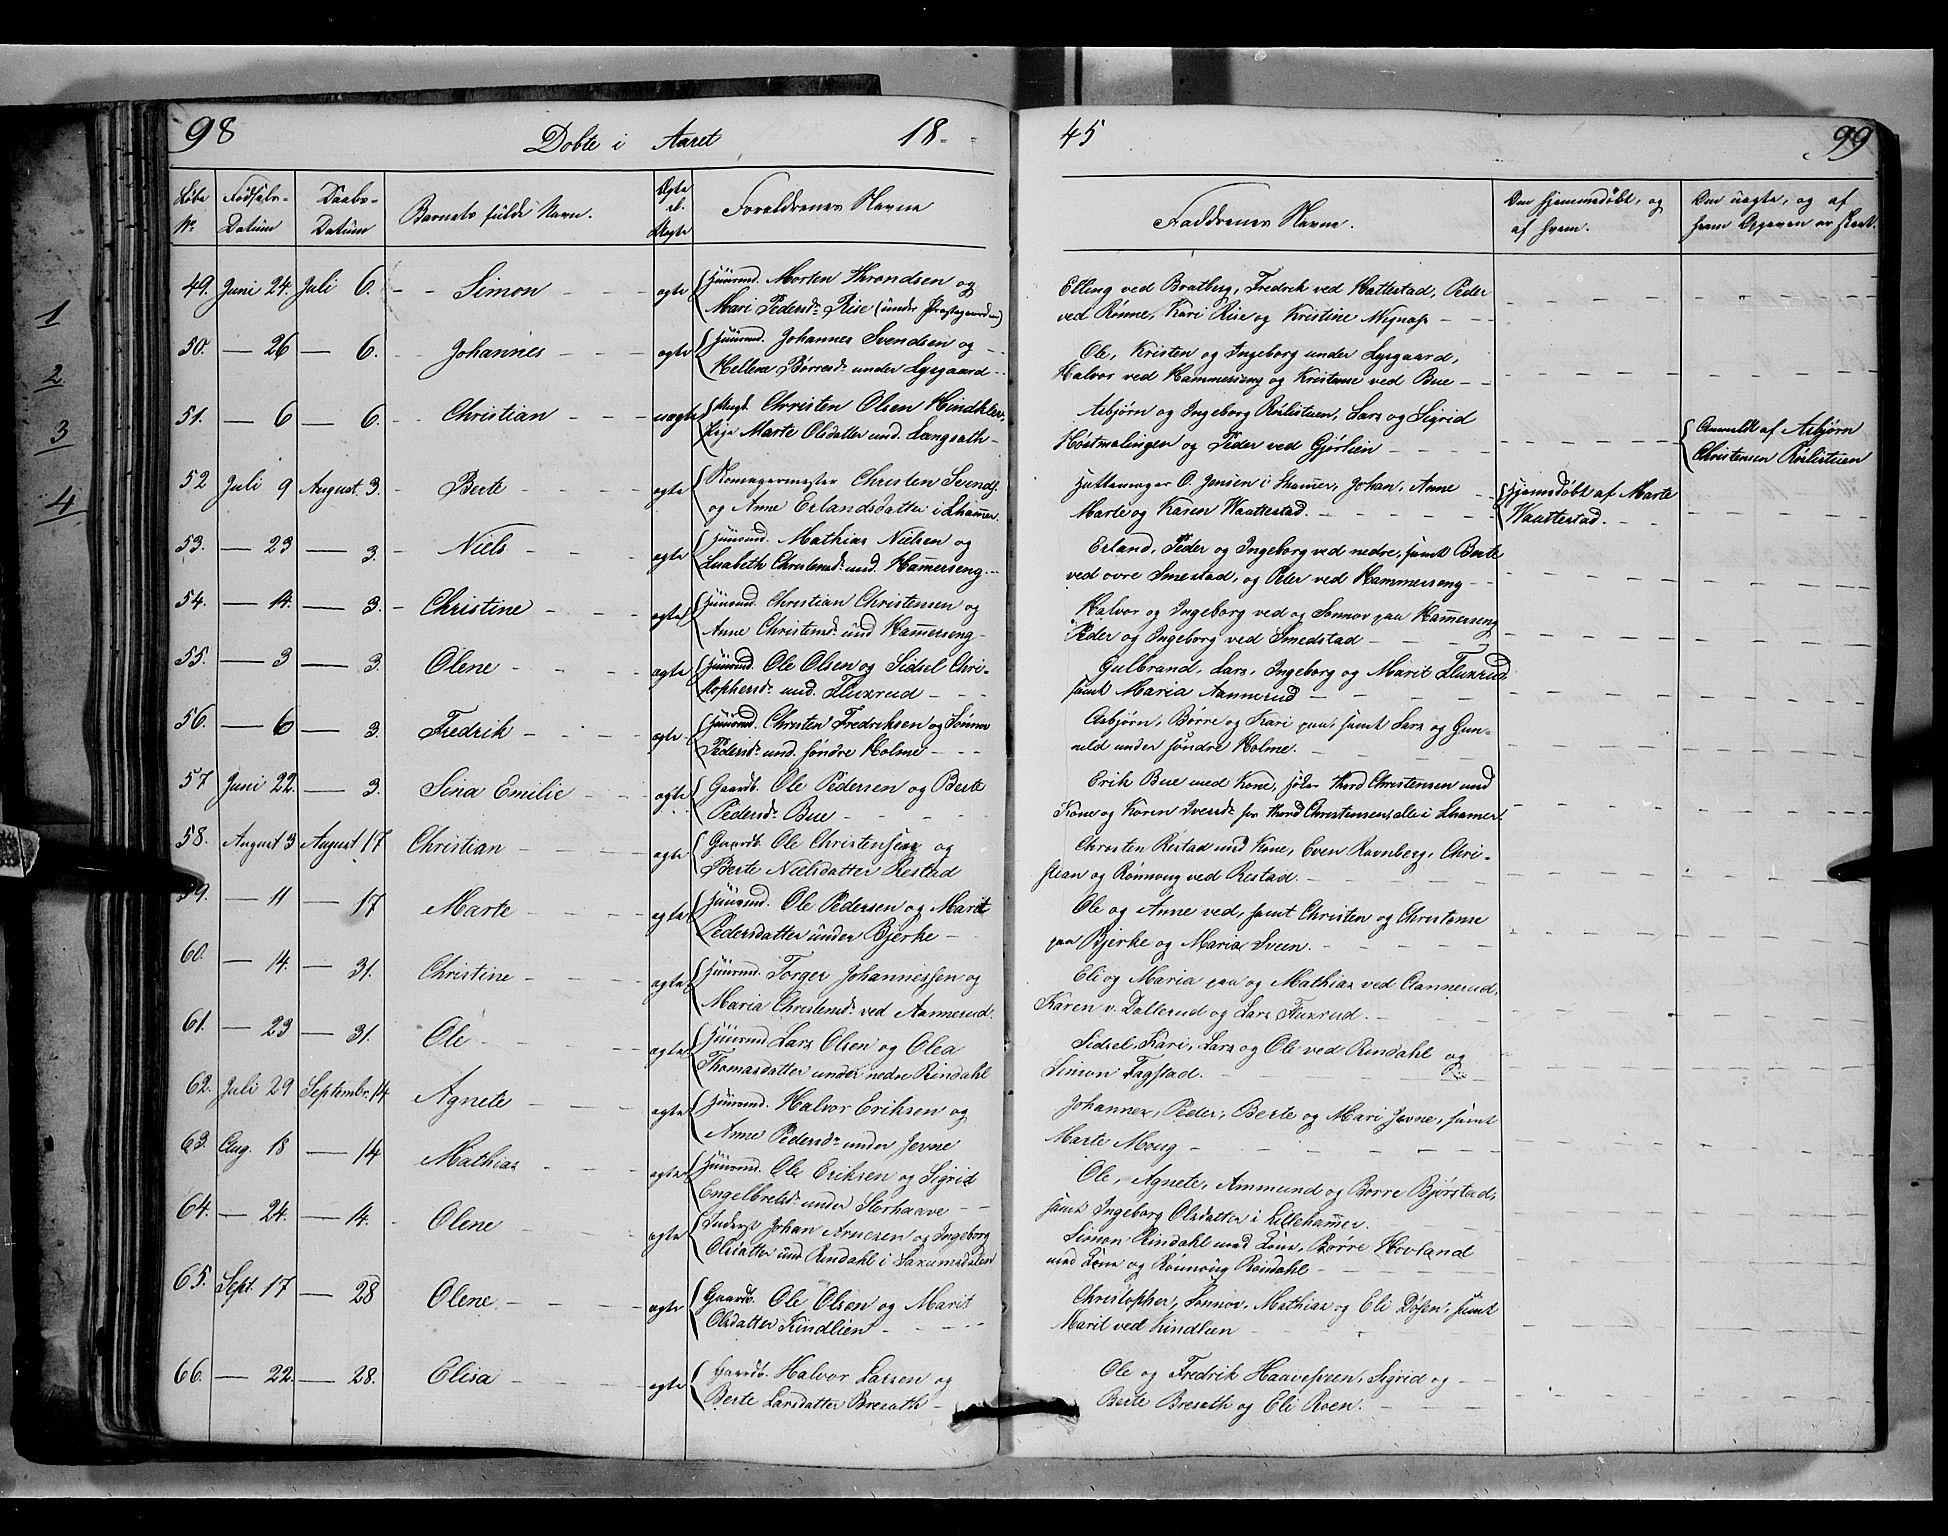 98
Døbte i Aaret
18-
Løbe
Nr.
Fødsels-
Datum
Daabs-
Datum
Barnets fulde Navn.
Ægte
el.
Uægte
Forældrenes Navne
49. Juni 24. Juli 6. Simon ægte Huusmd. Morten Throndsen og
Mari Pedersd. Rise (under Præstegaarden)
50. — 26 — 6. Johannes ægte Huusmd. Johannes Svendsen og
Hellene Børresd. under Lysgaard
51. — 6 — 6. Christian uægte Ungk. Christen Olsen Hindklev,
Pige Marte Olsdatter und. Langsæth
52 Juli 9 August. 3. Berte ægte Christen Svends.
og Anne Erlandsdatter i Lhamer.
53. — 23 — 3. Niels ægte Huusmd. Mathias Nielsen og
Lisabeth Christensd. und. Hamerseng.
54. — 14. — 3. Christine ægte Huusmd. Christian Christensen og
Anne Christensd. und Hamerseng
55. — 3 — 3. Olene ægte Huusmd. Ole Olsen og Sidsel Chri-
stophersd. und. Fluxrud
56. — 6 — 3. Fredrik ægte Huusmd. Christen Fredriksen og Sønnov
Pedersd. und. søndre Holme
57 Juni 22. — 3. Sina Emilie ægte Gaardb. Ole Pedersen og Berte
Pedersd. Bue
58. August 3 August 17 Christian ægte Gaardb. Ole Christensen og
Berte Nielsdatter Restad
59. — 11 — 17 Marte ægte Huusmd. Ole Pedersen og Marit
Pedersdatter under Bjerke
60. — 14. — 31. Christine ægte Huusmd. Torger Johannessen og
Maria Christensd. ved Aannerud.
61. — 23 — 31. Ole ægte Huusmd Lars Olsen og Olea
Thomasdatter under nedre Rindahl
62. Juli 29 Septembr. 14 Agnete ægte Huusmd. Halvor Eriksen og
Anne Pedersd. under Jevne
63. Aug. 18 — 14 Mathias ægte Huusmd. Ole Eriksen og Sigrid
Engelbretsd. under Storhaave
64. — 24. — 14. Olene ægte Inderst Johan Arnesen og Ingeborg
Olsdatter und. Rindahl i Saxumsdalen
65. Sept. 17 — 28 Olene ægte Gaardb. Ole Olsen og Marit
Olsdatter Kindlien
66. — 22. — 28. Elisa ægte Gaardb. Halvor Larsen og
Berte Larsdatter Bresæth
1
2
3
4
45
99
Faddrenes Navne.
Om hjemmedøbt, og
af hvem.
Om uægte, og af
hvem Opgaven er skeet.
Elling ved Bratberg, Fredrik ved Hattestad, Peder
ved Rønne, Kari Rise og Kristine
Ole, Kristen og Ingeborg under Lysgaard,
Halvor ved Hammerseng og Kristense ved Bue
Asbjørn og Ingeborg Roelistuen, Lars og Sigrid
og Peder ved Gjørlien
Anmeldt af Asbjørn
Christensen Roelistuen
O. Jensen i Lhamer, Johan, Anne
Marte og Karen Waattestad.
Hjemmdøbt af Marte
Waattestad.
Erland, Peder og Ingeborg ved nedre, samt Berte
ved øvre Smestad, og Peter ved Hammerseng
Halvor og Ingeborg ved og Sønnov paa Hamerseng
Peder og Ingeborg ved Smedstad
Gulbrand, Lars, Ingeborg og Marit Fluxrud
samt Maria Aannerud
Asbjørn, Børre og Kari paa, samt Lars og Gun-
ild under søndre Holme.
Erik Bue med Kone, Thord Christensen med
Kone og Karen Iversd. for Thord Christensen, alle i Lhamer.
Christen Restad med Kone, Even Ravnberg, Chri-
stian og Rønnoug ved Restad.
Ole og Anne ved, samt Christen og Christense
paa Bjerke og Maria Sveen.
Eli og Maria paa og Mathias ved Aannerud,
Karen v. Dallerud og Lars Fluxrud.
Sidsel, Kari, Lars og Ole ved Rindahl og
Simon Fagstad.
Johannes, Peder, Berte og Mari Jevne, samt
Marte Moug
Ole, Agnete, Ammund og Børre Bjørstad,
samt Ingeborg Olsdatter i Lillehamer.
Simon Rindahl med Kone, Børre Hovland
med Kone og Rønnoug Rindahl
Christopher, Sønnov, Mathias og Eli Døsen, samt
Marit ved Kindlien
Ole og Fredrik Haavesveen, Sigrid og
Berte Bresæth og Eli Roen.